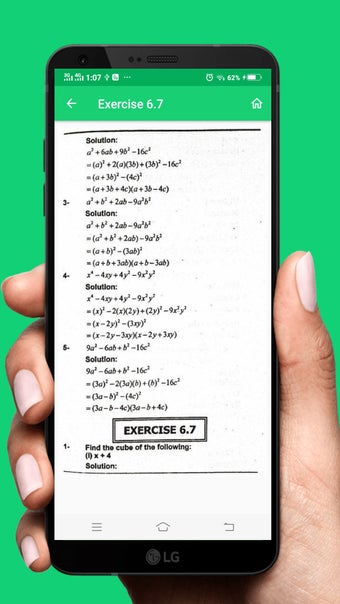 1:07 62%
Exercise 6.7
Solution:
a² + 6ab + 9b² – 16c²
= (a)² + 2(a)(3b) + (3b)² – 16c²
= (a + 3b)² – (4c)²
= (a + 3b + 4c)(a + 3b – 4c)
3- a² + b² + 2ab – 9a²b²
Solution:
a² + b² + 2ab – 9a²b²
= (a² + b² + 2ab) – 9a²b²
= (a + b)² – (3ab)²
= (a + b + 3ab)(a + b – 3ab)
4- x⁴ – 4xy + 4y² – 9x²y²
Solution:
x⁴ – 4xy + 4y² – 9x²y²
= (x)² – 2(x)(2y) + (2y)² – 9x²y²
= (x – 2y)² – (3xy)²
= (x – 2y – 3xy)(x – 2y + 3xy)
5- 9a² – 6ab + b² – 16c²
Solution:
9a² – 6ab + b² – 16c²
= (3a)² – 2(3a)(b) + (b)² – 16c²
= (3a – b)² – (4c)²
= (3a – b – 4c)(3a – b + 4c)
EXERCISE 6.7
1- Find the cube of the following:
(i) x + 4
Solution:
LG